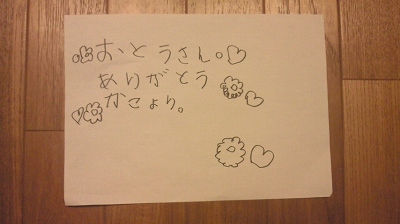 おとうさん。
ありがとう
かこより。